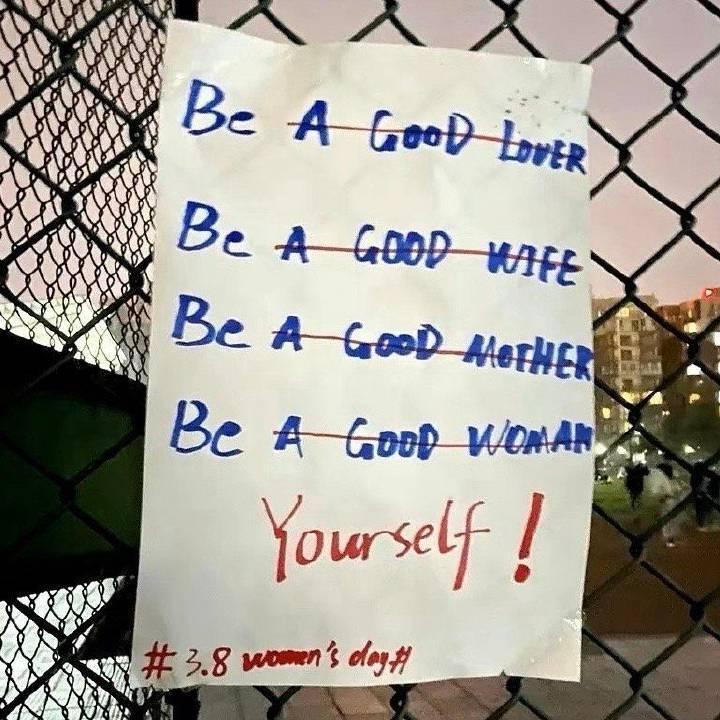 Be A GOOD LOVER
Be A GOOD WIFE
Be A GOOD MOTHER
Be A GOOD WOMAN
Yourself!
#3.8 women's day#